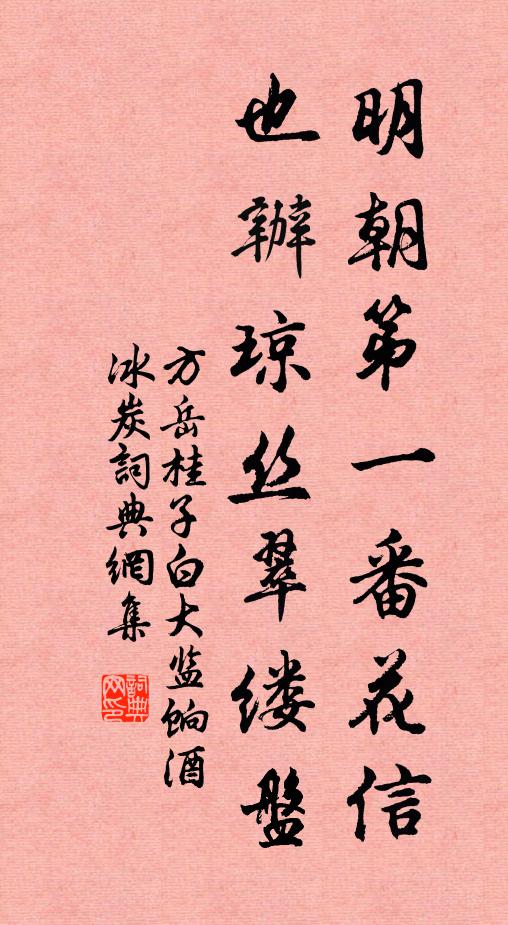 明朝第一番花信
也辦琼丝翠缕盤
方岳桂子白大监饷酒
冰炭詞典網集
詞典
网印